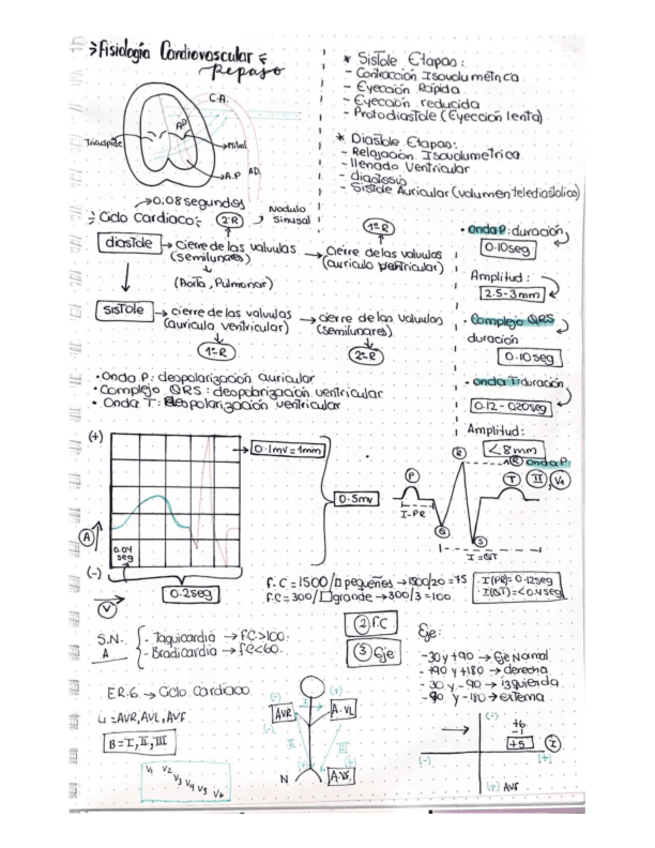 Fisiología Cardiovascular
Repaso
C.A.
AD
Tricuspide
Mitral
A.P
AD.
* Sistole Etapas:
- Contracción Isovolumétrica
- Eyección Rápida
- Eyección reducida
- Protodiastole (Eyección lenta)
* Diastole Etapas:
- Relajación Isovolumetrica
- llenado Ventricular
- diastasis
- Sistole Auricular (volumen telediastolico)
→0.08 segundos
Ciclo Cardiaco:
2ºR
Nodulo
Sinusal
1ºR
diastole → cierre de las valvulas → Cierre de las valvulas
(semilunares)
(auriculo ventricular)
(Aorta, Pulmonar)
sistole → cierre de las valvulas → cierre de las valvulas
(auricula ventricular)
(semilunares)
1ºR
2ºR
• onda P: duración
0.10 seg
Amplitud:
2.5-3mm
• Complejo QRS
duración
0.10 seg
• onda T: duración
0.12-020seg
Amplitud:
<8mm
• Onda P: despolarización auricular
• Complejo QRS: despolarización ventricular
• Onda T: Despolarización ventricular
(+)
0.1mv = 1mm
0.5mv
A
0.04
seg
(-)
0.2seg
V
P
R
onda P
T
II, V1
I-PR
Q
S
I=QT
F.C = 1500/□ pequeños → 1500/20 = 75
F.C = 300/□ grande → 300/3 = 100
· I(PR)= 0.12seg
· I(QT)= <0.4seg
S.N.
A
- Taquicardia → FC>100.
- Bradicardia → FC<60.
② F.C
③ Eje
Eje:
-30 y +90 → Eje Normal
- +90 y +180 → derecha
- 30 y -90 → izquierda
- 90 y -180 → externa
E.R.6 → Ciclo Cardiaco
4 = AVR, AVL, AVF
B = I, II, III
V1 V2 V3 V4 V5 V6
(-)
I
(+)
AVR
A.VL
(-)
(-)
II
III
(+)
(+)
N
A.VF
(-)
+6
-1
+5
I
(-)
(+)
(+) AVF